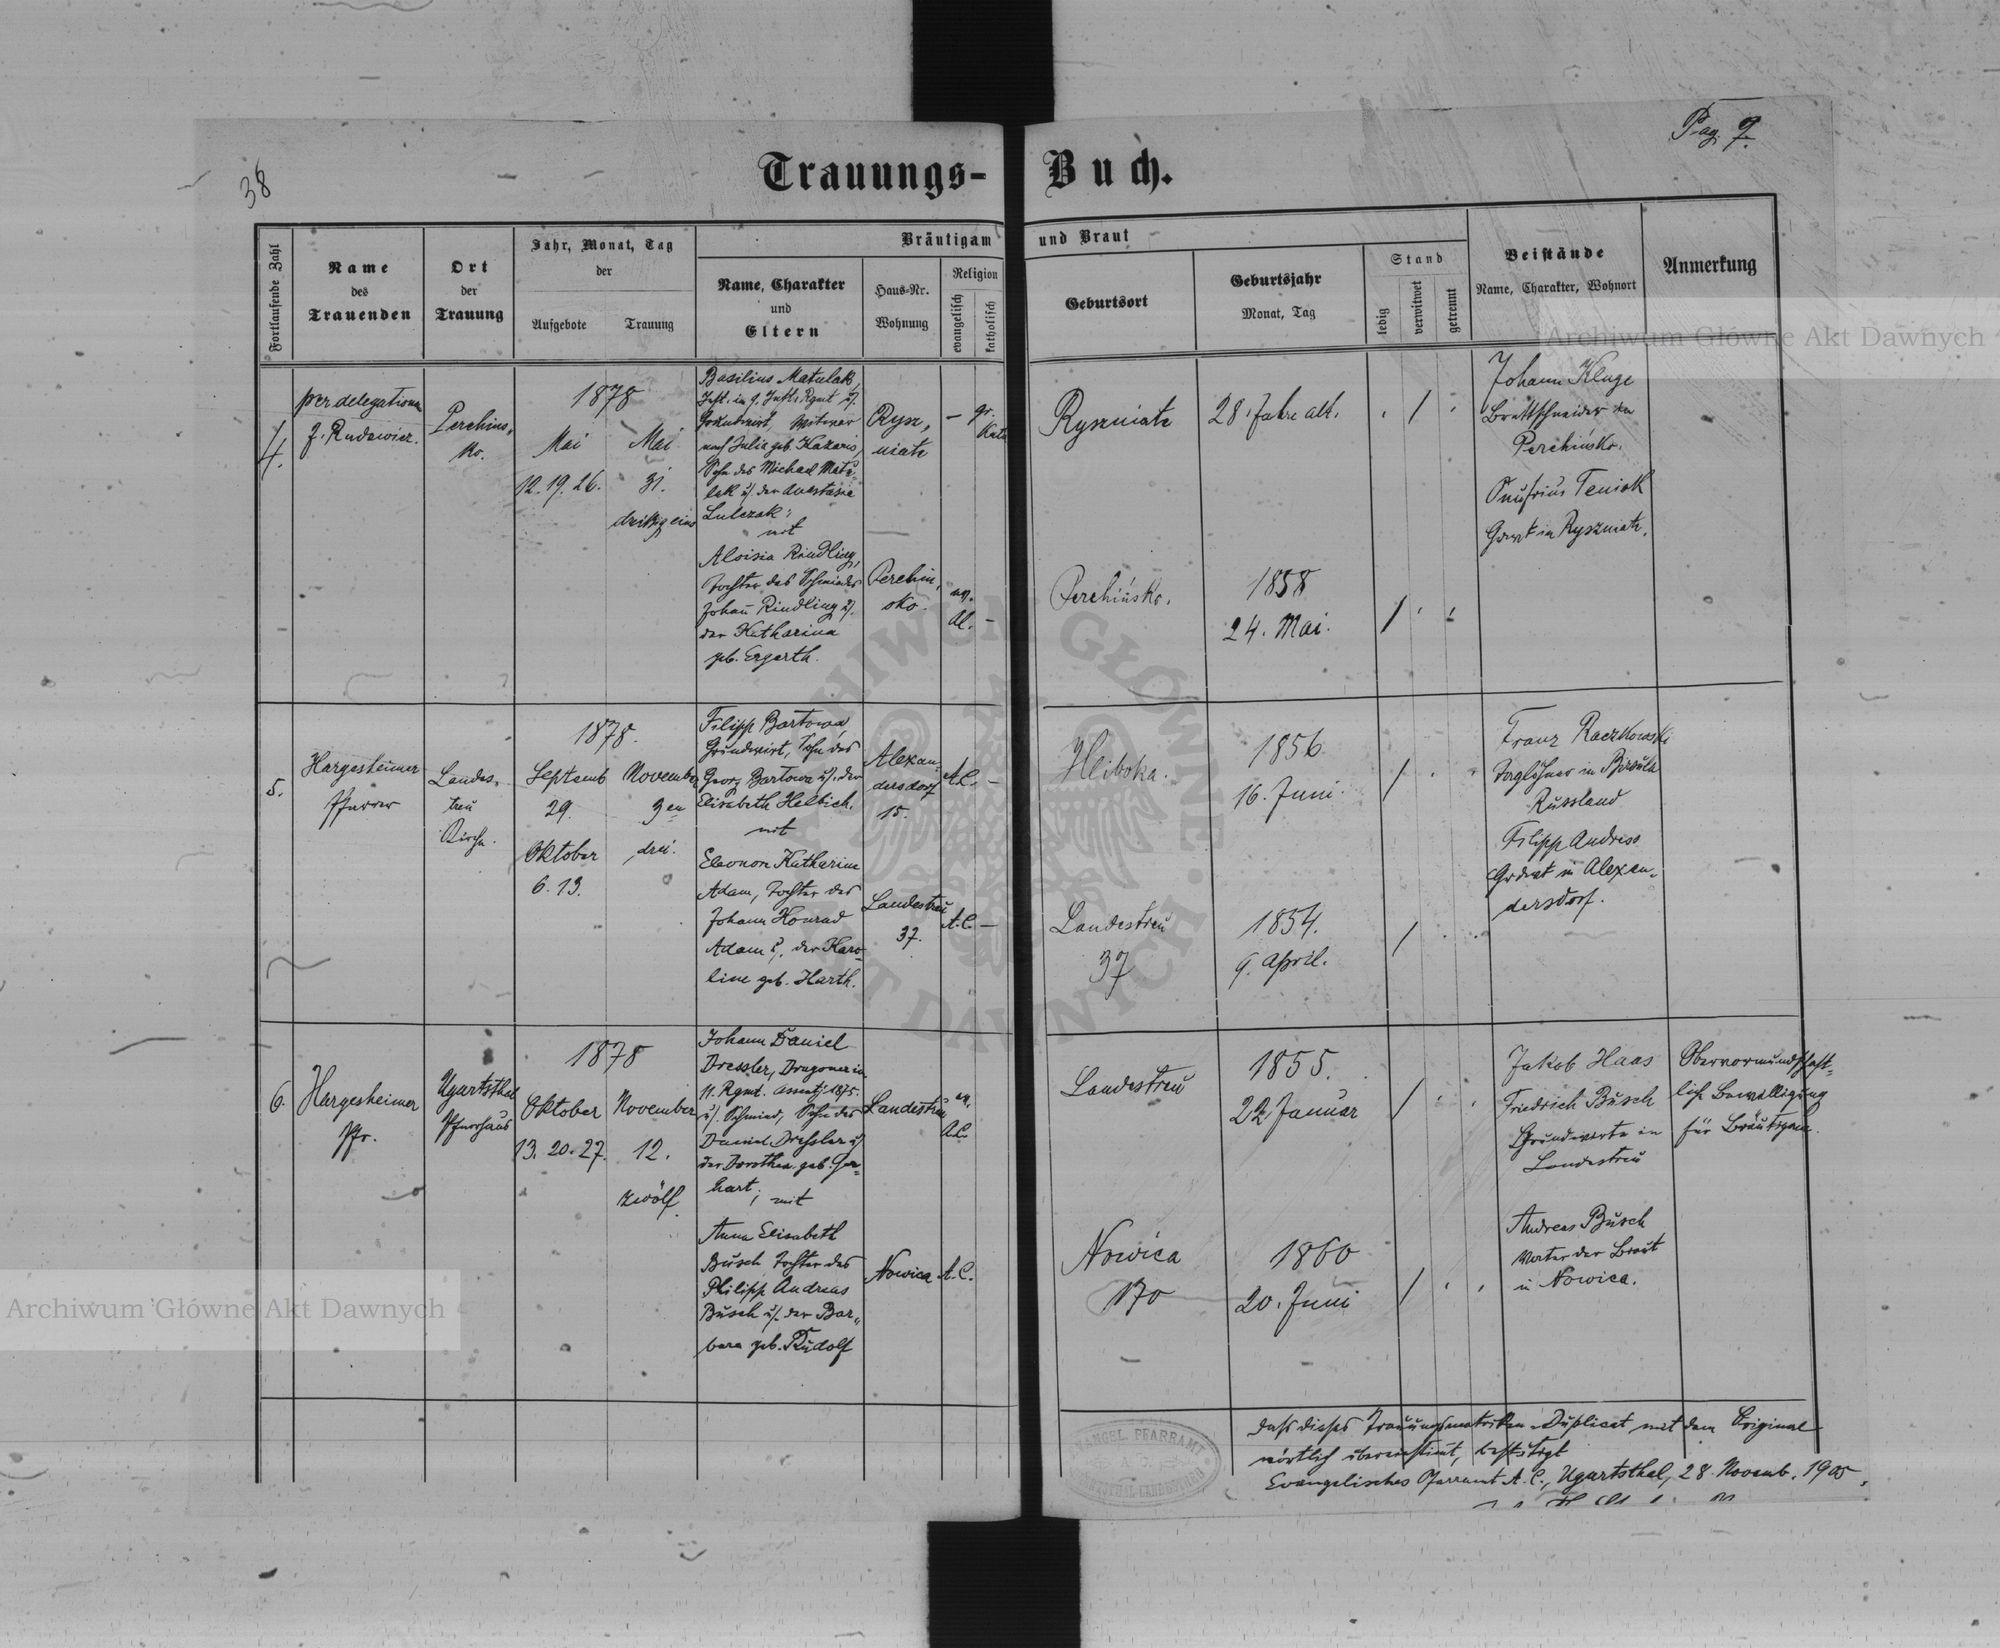 Pag. 9.
38
Trauungs-Buch.
Fortlaufende Zahl
Name
des
Trauenden
Ort
der
Trauung
Jahr, Monat, Tag
der
Aufgebote
Trauung
Bräutigam und Braut
Name, Charakter
und
Eltern
Haus-Nr.
Wohnung
Religion
evangelisch
katholisch
Geburtsort
Geburtsjahr
Monat, Tag
Stand
ledig
verwitwet
getrennt
Beistände
Name, Charakter, Wohnort
Anmerkung
4.
per delegationem
J. Rudowicz.
Perehins,
ko.
1878
Mai
12. 19. 26.
Mai
31.
dreißig eins
Basilius Matulak,
Inft. in 9. Inft. Rgmt u/.
Grundwirt, Witwer
nach Julia geb. Kazaris,
Sohn des Michael Matu-
lak u/. der Anastasia
Lulczak;
mit
Aloisia Rindling,
Tochter des Schmiedes
Johann Rindling u/.
der Katharina
geb. Ergerth.
Rysz,
niate
— gr.
Kath
Perehin,
sko.
ev.
Al. —
Ryszniate
28. Jahre alt.
Perehińsko.
1858
24. Mai.
Johann Kluge
Brettschneider in
Perehińsko.
Onufrius Teniok
Grwt in Ryszniate.
5.
Hargesheimer
Pfarrer
Landes-
treu
Kirche.
1878.
Septemb
29.
Oktober
6. 13.
November
3en
drei.
Filipp Bartowa,
Grundwirt, Sohn des
Georg Bartowa u/. der
Elisabeth Helbich.
mit
Eleonore Katharine
Adam, Tochter des
Johann Konrad
Adam u/. der Karo-
line geb. Harth.
Alexan-
dersdorf
15.
A.C. —
Landestreu
37.
A.C. —
Hliboka.
1856
16. Juni.
Landestreu
37
1854.
9. April.
Franz Raczkowski
Taglöhner in
Russland
Filipp Andress
Grdwt in Alexan-
dersdorf.
6.
Hargesheimer
Pfr.
Ugartsthal
Pfarrhaus
1878
Oktober
13. 20. 27.
November
12.
zwölf
Johann Daniel
Dressler, Dragoner in
11. Rgmt. assentj. 1875.
u/. Schmied, Sohn des
Daniel Dressler u/
der Dorothea geb. Ger-
hart; mit
Anna Elisabeth
Busch Tochter des
Philipp Andreas
Busch u/. der Bar-
bara geb. Rudolf
Landestreu
ev.
A.C.
Nowica
A.C.
Landestreu
1855.
22. Januar
Nowica
170
1860
20. Juni
Jakob Haas
Friedrich Busch
Grundwirte in
Landestreu
Andreas Busch
Vater der Braut
in Nowica.
Obervormundschaft-
lich Bewilligung
für Bräutigam.
Dass dieses Trauungsmatriken-Duplicat mit dem Original
wörtlich übereinstimt, bestätigt
Evangelisches Pfarramt A.C., Ugartsthal, 28. Novemb. 1900.
EVANGEL. PFARRAMT
Archiwum Główne Akt Dawnych
Archiwum Główne Akt Dawnych
ARCHIWUM GŁÓWNE AKT DAWNYCH